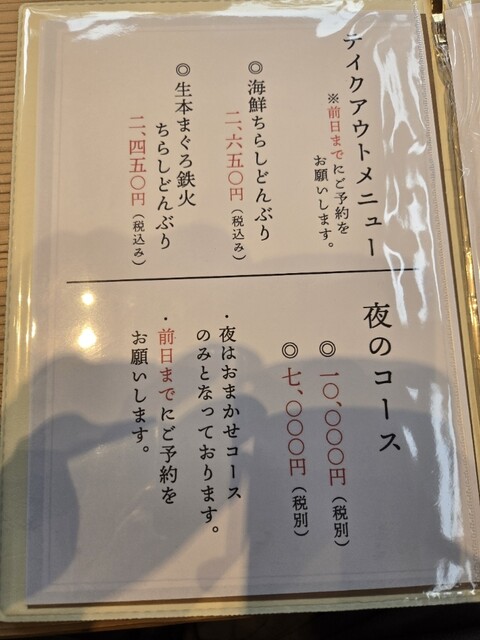 テイクアウトメニュー
※前日までにご予約を
お願いします。
◎海鮮ちらしどんぶり
二、六五〇円（税込み）
◎生本まぐろ鉄火
ちらしどんぶり
二、四五〇円（税込み）
夜のコース
◎一〇、〇〇〇円（税別）
◎七、〇〇〇円（税別）
・夜はおまかせコース
のみとなっております。
・前日までにご予約を
お願いします。